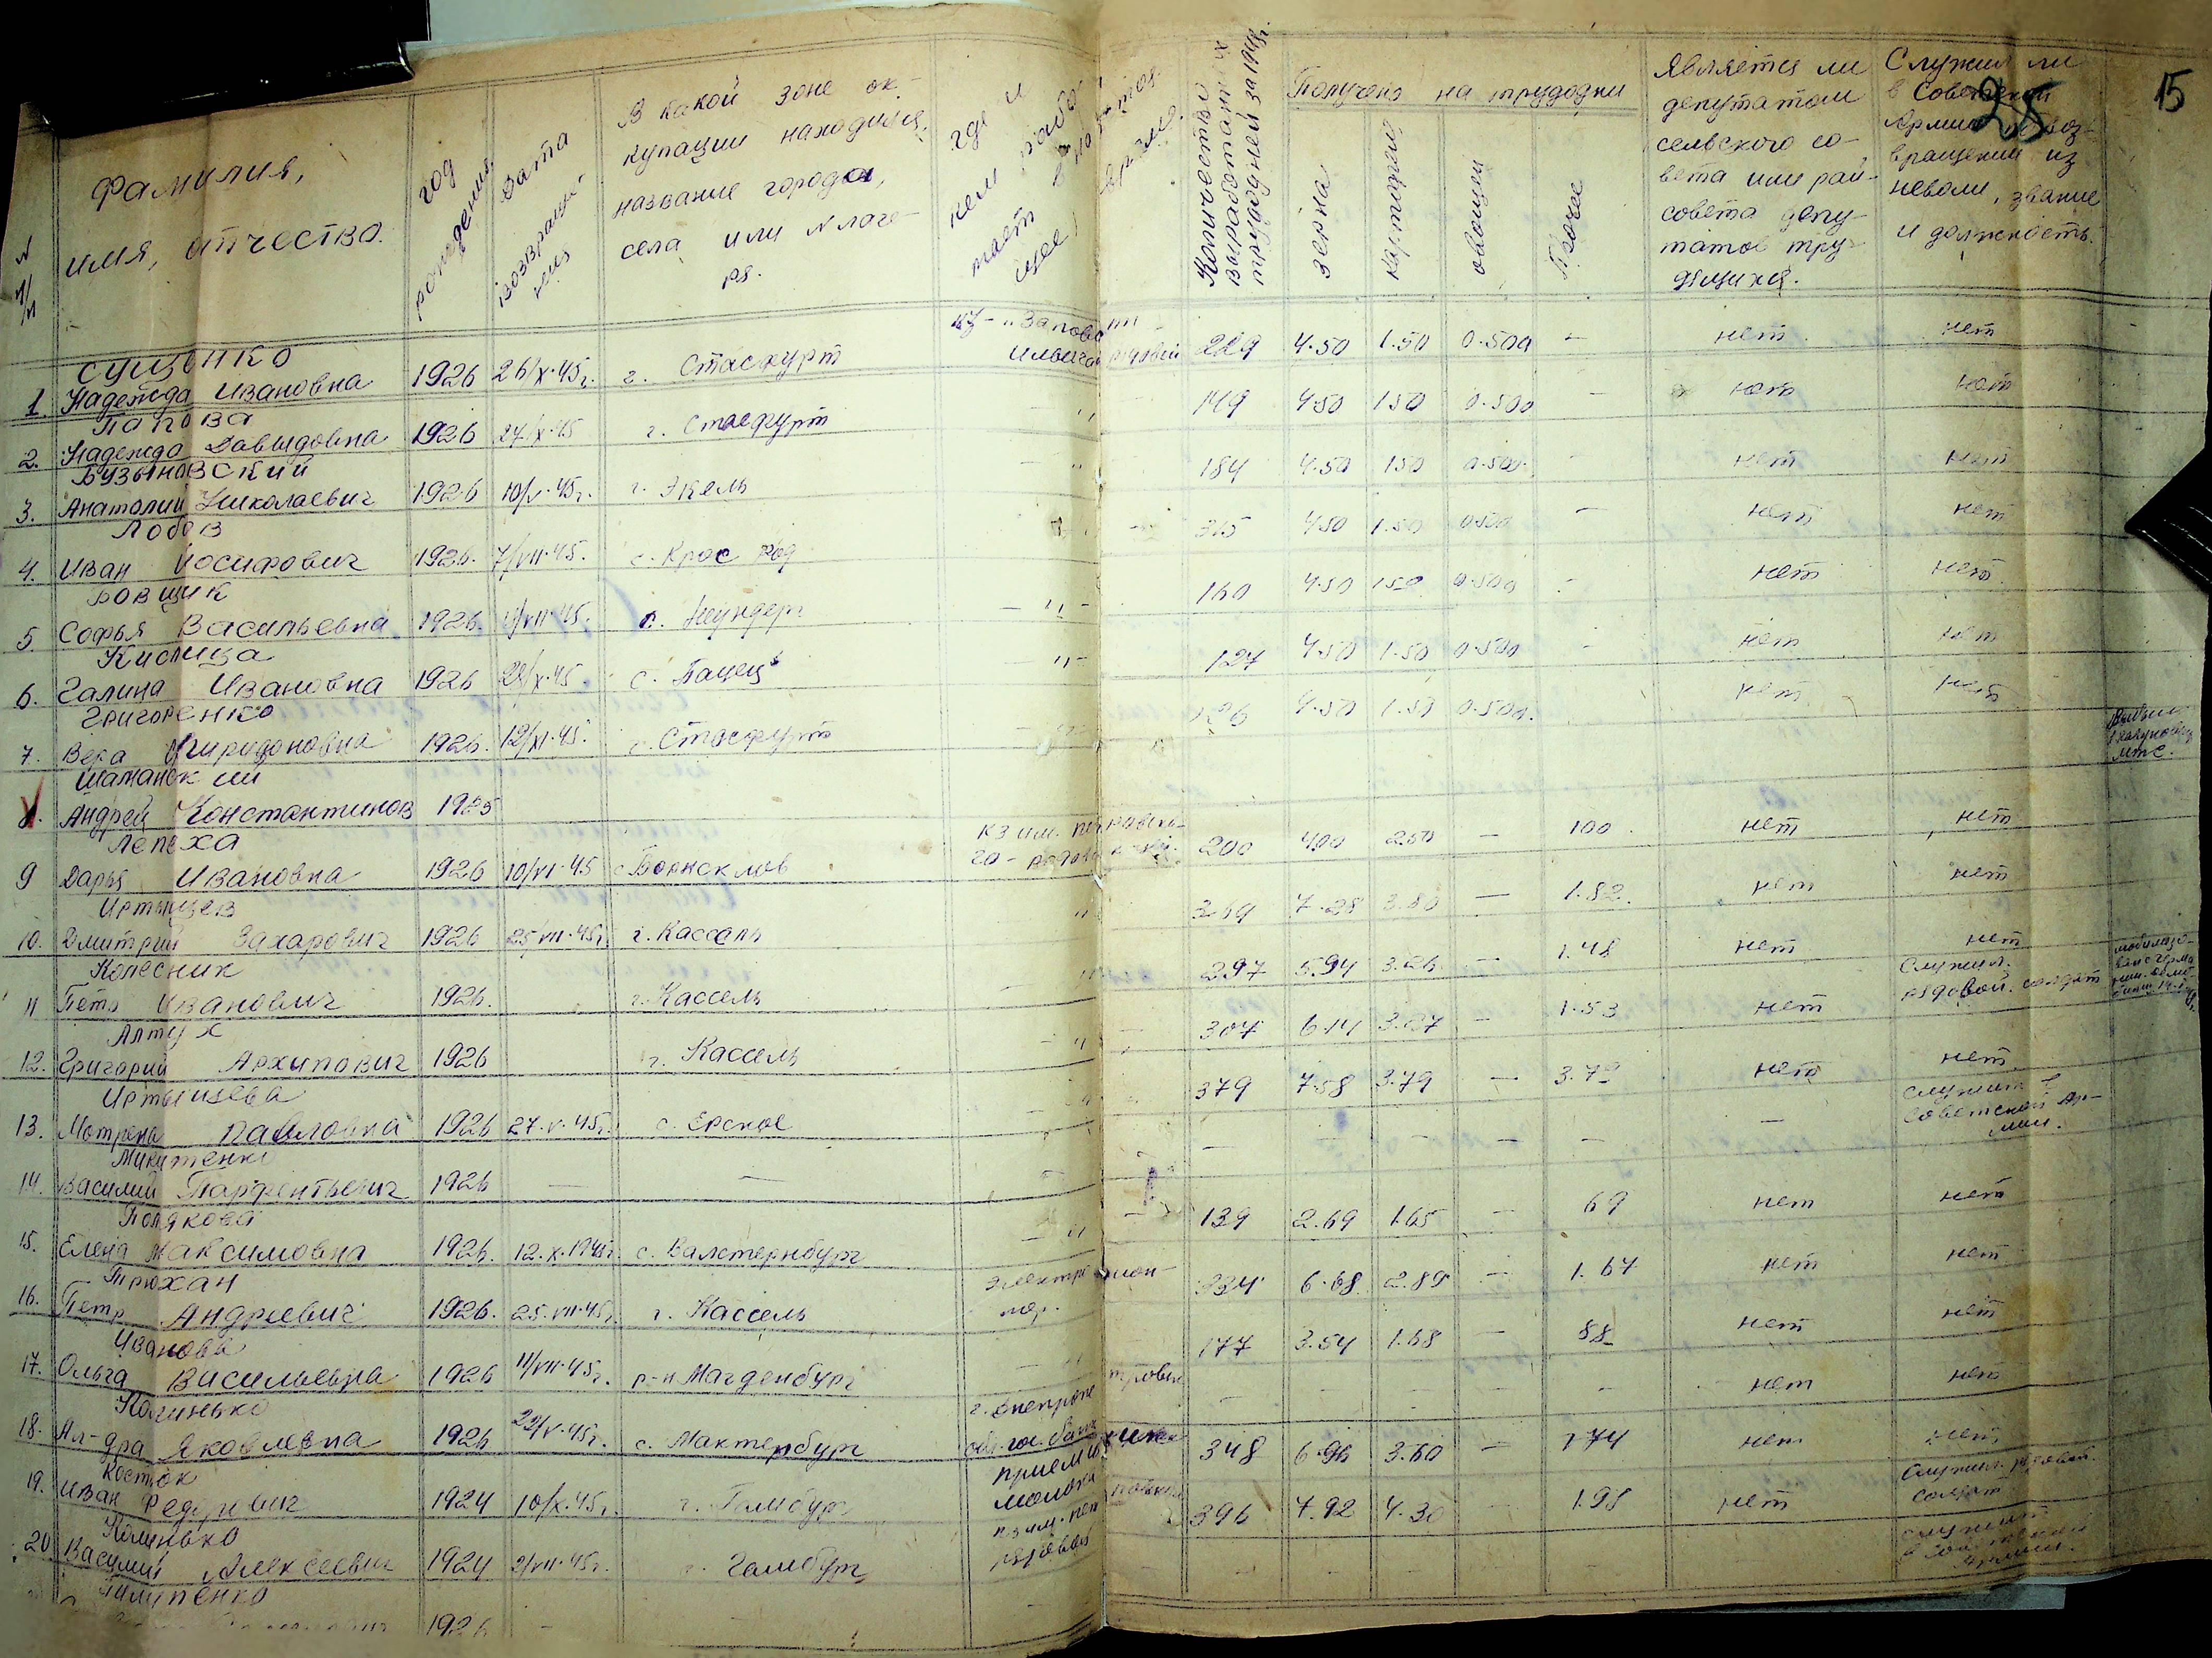 25
15
N п/п
Фамилия, имя, отчество.
год рождения
Дата возвращения
В какой зоне оккупации находился, название города, села или N лагеря.
где и кем работает
Количество выработанных трудодней за 1948г.
Получено на трудодни
зерна
картофеля
овощей
Прочее
Является ли депутатом сельского совета или райсовета депутатов трудящихся.
Служил ли в Советской Армии по возвращении из неволи, звание и должность.
1. Сущенко Надежда Ивановна 1926 26/X.45г. г. Стасфурт 229 4.50 1.50 0.500 - нет нет
2. Попова Надежда Давыдовна 1926 27/X.45 г. Стасфурт -"- 149 4.50 1.50 0.500 - нет нет
3. Бузыновский Анатолий Николаевич 1926 10/V.45г. г. Экель -"- 184 4.50 150 0.500 - нет нет
4. Лобов Иван Иосифович 1926. 7/VII.45. с. 315 4.50 1.50 0.500 - нет нет
5 Бовщик Софья Васильевна 1926. /VII.45. -"- 160 4.50 1.50 0.500 - нет нет
6. Кислица Галина Ивановна 1926 /X.45 с. -"- 127 4.50 1.50 0.500 - нет нет
7. Григоренко Вера Спиридоновна 1926. 12/XI.45. г. Стасфурт 4.50 1.50 0.500. нет нет
8. Шаманский Андрей Константинов 1925
МТС.
9 Лепеха Дарья Ивановна 1926 10/VI.45 кз им. 200 400 250 - 100. нет нет
10. Иртышев Дмитрий Захарович 1926 25/VII.45г. г. Кассель " 369 7.28 3.80 - 1.82. нет нет
11 Колесник Петр Иванович 1926. г. Кассель 297 5.94 3.26 - 1.48 нет нет
Служил. рядовой. солдат
12. Алтух Григорий Архипович 1926 г. Кассель -"- 307 6.14 3.27 - 1.53 нет
13. Иртышева Мотрена Павловна 1926 27.V.45г. с. Ерское 379 7.58 3.79 - 3.79 нет нет
14. Микитенко Василий Парфентьевич 1926 - - - - - - - - служит в Советской Армии.
15. Полякова Елена Максимовна 1926. 12.X.1945г. с. Валстернбург -"- 139 2.69 1.65 - 69 нет нет
16. Трюхан Петр Андреевич 1926. 25.VII.45г. г. Кассель электромонтер. 334 6.68 2.89 - 1.67 нет нет
17. Иванова Ольга Васильевна 1926 11/VII.45г. р-н Магденбург -"- 177 3.54 1.68 - 88 нет нет
18. Калинько Ал-дра Яковлевна 1926 22/V.45г. с. Мактенбург - - - - - нет нет
19. Костюк Иван Федорович 1924 10/X.45г. г. Гамбург молока 348 6.96 3.60 - 174 нет нет
20 Калинько Василий Алексеевич 1924 2/VII.45г. г. Гамбург рядовой 396 7.92 4.30 - 1.98 нет Служил рядовой солдат
Пилипенко 1926 - - служит в Советской Армии.